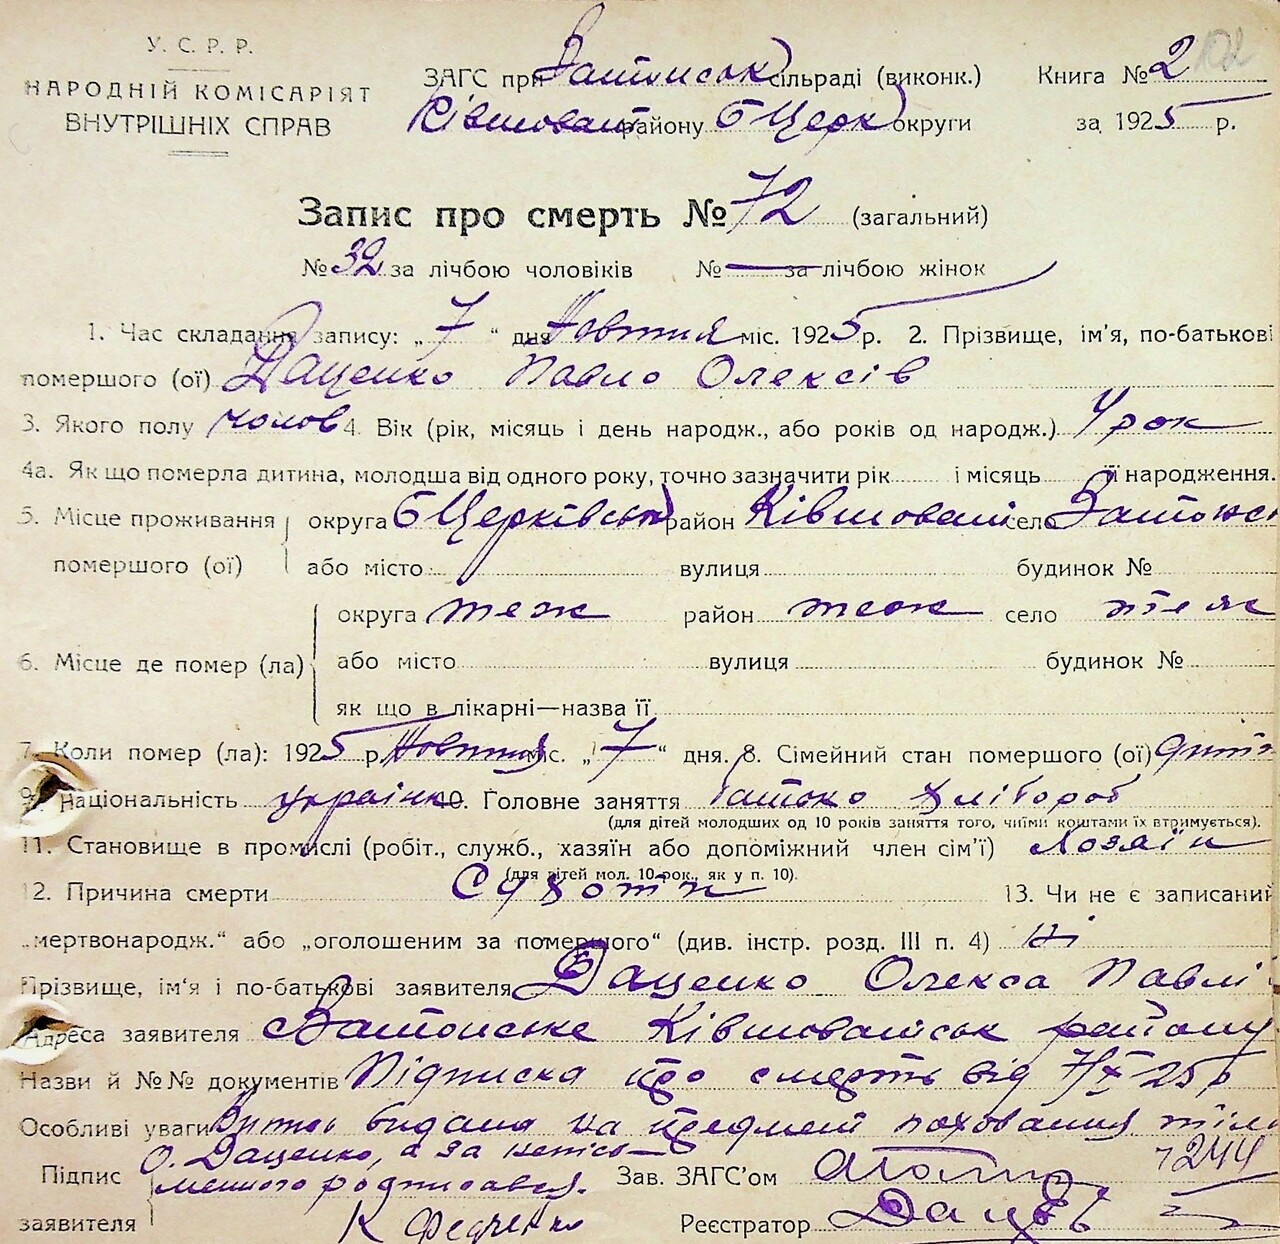 У. С. Р. Р.
НАРОДНІЙ КОМІСАРІЯТ
ВНУТРІШНІХ СПРАВ
ЗАГС при Затонськ сільраді (виконк.)
Ківшоват району БЦерк округи
Книга № 2 102
за 1925 р.
Запис про смерть № 72 (загальний)
№ 32 за лічбою чоловіків № — за лічбою жінок
1. Час складання запису: „ 7 “ дня Жовтня міс. 1925 р. 2. Прізвище, ім'я, по-батькові
помершого (ої) Даценко Павло Олексів
3. Якого полу чолов 4. Вік (рік, місяць і день народж., або років од народж.) рок
4а. Як що померла дитина, молодша від одного року, точно зазначити рік і місяць її народження.
5. Місце проживання помершого (ої) округа БЦерківськ район Ківшоват село Затонськ
або місто вулиця будинок №
6. Місце де помер (ла) округа теж район теж село теж
або місто вулиця будинок №
як що в лікарні—назва її
7. Коли помер (ла): 1925 р. Жовтня міс. „ 7 “ дня. 8. Сімейний стан помершого (ої) дит
9. Національність україн 10. Головне заняття батько хлібороб
(для дітей молодших од 10 років заняття того, чиїми коштами їх втримується).
11. Становище в промислі (робіт., служб., хазяїн або допоміжний член сім'ї) хозяїн
(для дітей мол. 10 рок., як у п. 10).
12. Причина смерти Сухоти 13. Чи не є записаний
„мертвонародж.“ або „оголошеним за помершого“ (див. інстр. розд. III п. 4) ні
Прізвище, ім'я і по-батькові заявителя Даценко Олекса Павлі
Адреса заявителя Затонське Ківшоватськ району
Назви й №№ документів Підписка про смерть від 7/X-25р
Особливі уваги видана на предмет поховання тіла
Підпис заявителя О. Даценко, а за непись-
менного росписався
К Федченко
Зав. ЗАГС'ом
Реєстратор